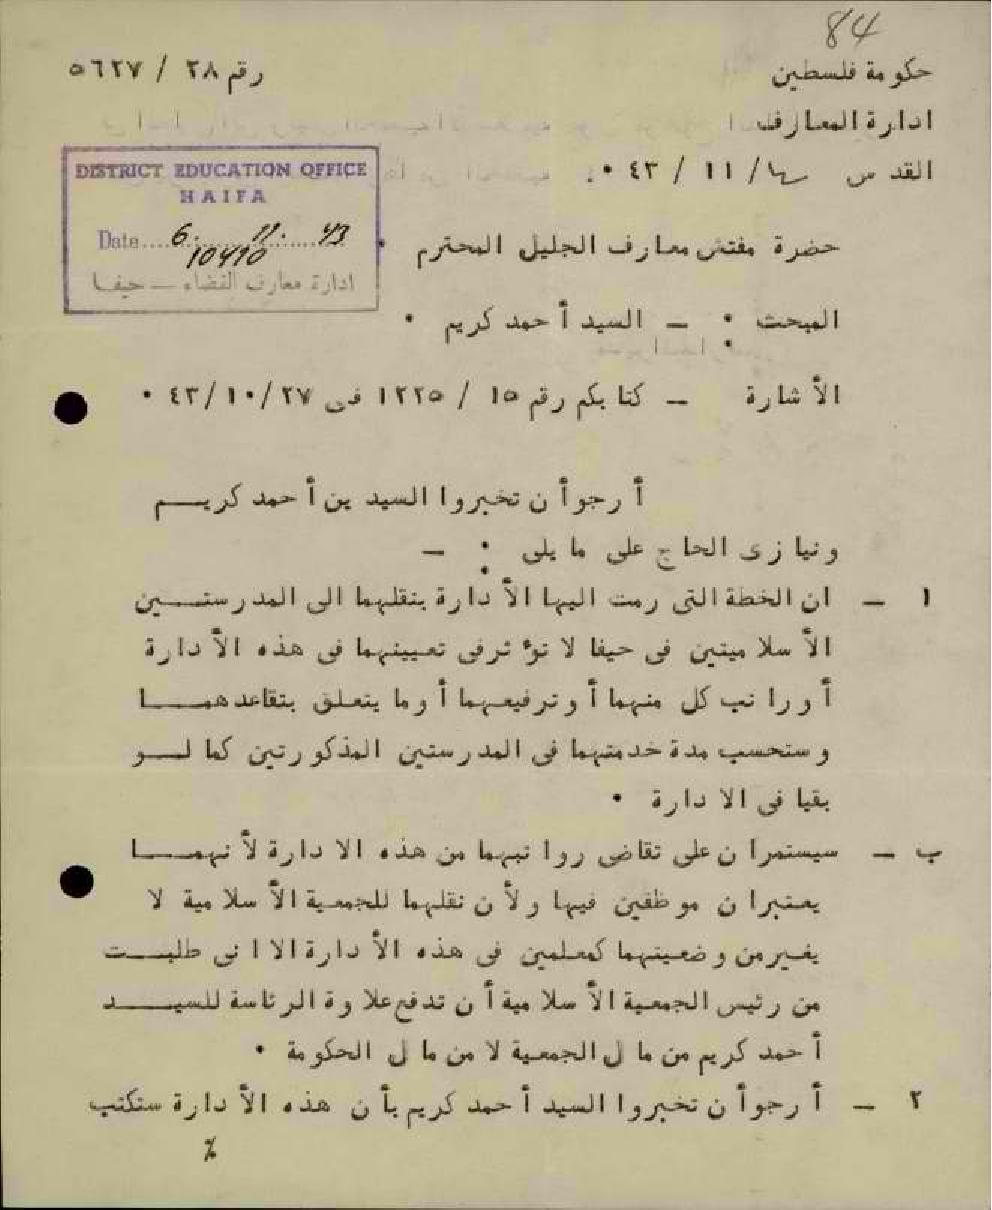 84
حكومة فلسطين
رقم ٢٨ / ٥٦٢٧
ادارة المعارف
القدس / ١١ / ٤٣ ٠
DISTRICT EDUCATION OFFICE
HAIFA
Date....6......11.......43
10410
ادارة معارف القضاء — حيفا
حضرة مفتش معارف الجليل المحترم ٠
المبحث : — السيد أحمد كريم ٠
الأشارة — كتابكم رقم ١٥ / ١٢٢٥ فى ٤٣/١٠/٢٧ ٠
أرجو أن تخبروا السيدين أحمد كريـــم
ونيازى الحاج على ما يلى : —
١ — ان الخطة التى رمت اليها الأدارة بنقلهما الى المدرستـــين
الأسلاميتين فى حيفا لا تؤثر فى تعيينهما فى هذه الأدارة
أو راتب كل منهما أو ترفيعهما أو ما يتعلق بتقاعدهمـــا
وستحسب مدة خدمتهما فى المدرستين المذكورتين كما لـــو
بقيا فى الادارة ٠
ب — سيستمران على تقاضى رواتبهما من هذه الادارة لأنهمـــا
يعتبران موظفين فيها ولأن نقلهما للجمعية الأسلامية لا
يغير من وضعيتهما كمعلمين فى هذه الأدارة الا انى طلبـــت
من رئيس الجمعية الأسلامية أن تدفع علاوة الرئاسة للسيـــد
أحمد كريم من مال الجمعية لا من مال الحكومة ٠
٢ — أرجو أن تخبروا السيد أحمد كريم بأن هذه الأدارة ستكتب
٪